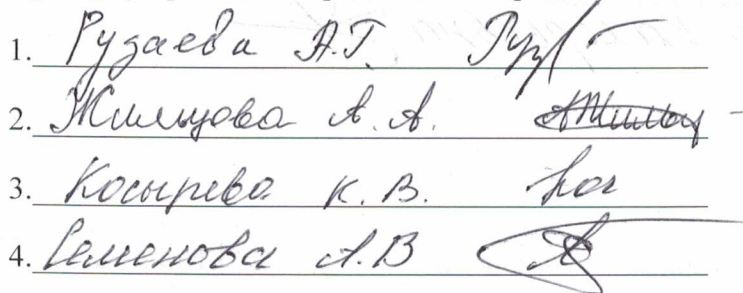 1. Рудаева А.Г.
2. Жильцова А. А.
3. Косырева К. В.
4. Семенова А.В